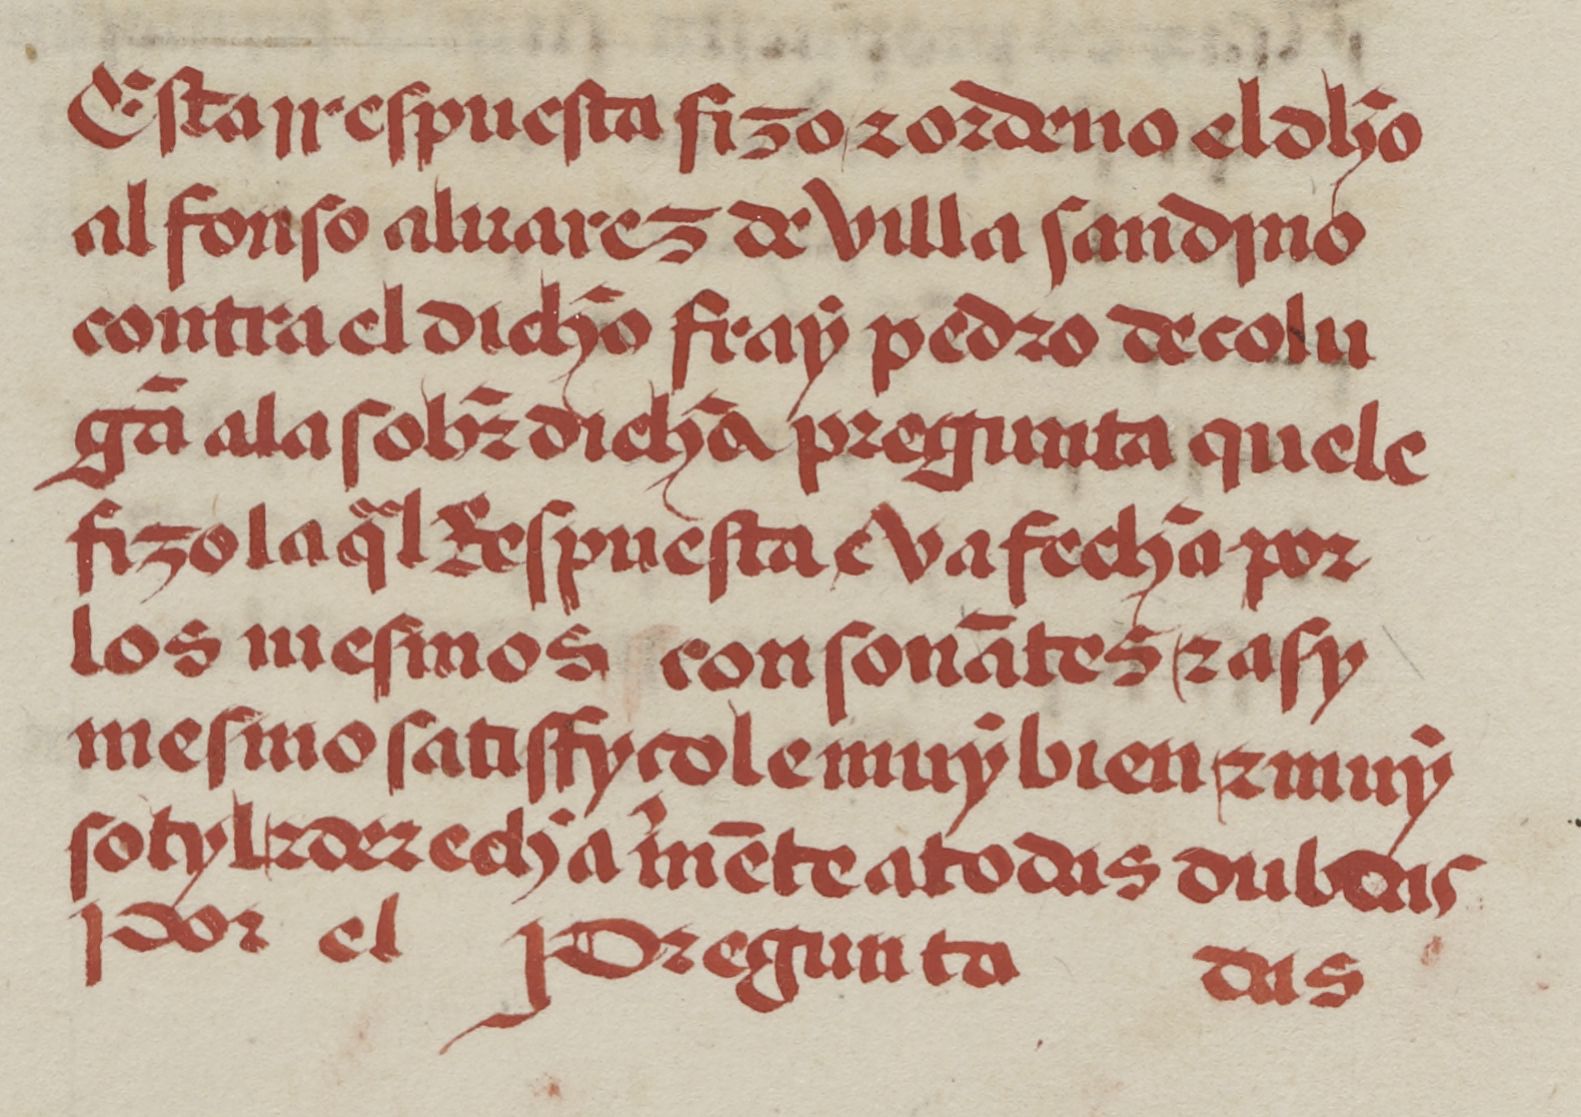 Esta rrespuesta fizo ⁊ ordeno el dħo
alfonso aluarez de villa sandino
contra el dicħo fraỹ pedro de colu
gã a la sobr̃dicħa pregunta que le
fizo la q̃l Respuesta e va fecħa por
los mesmos consonãtes ⁊ asy
mesmo satisffyçole muỹ bien ⁊ muỹ
sotyl ⁊ derecħa mẽte a todas dubdas
Por el Preguntadas